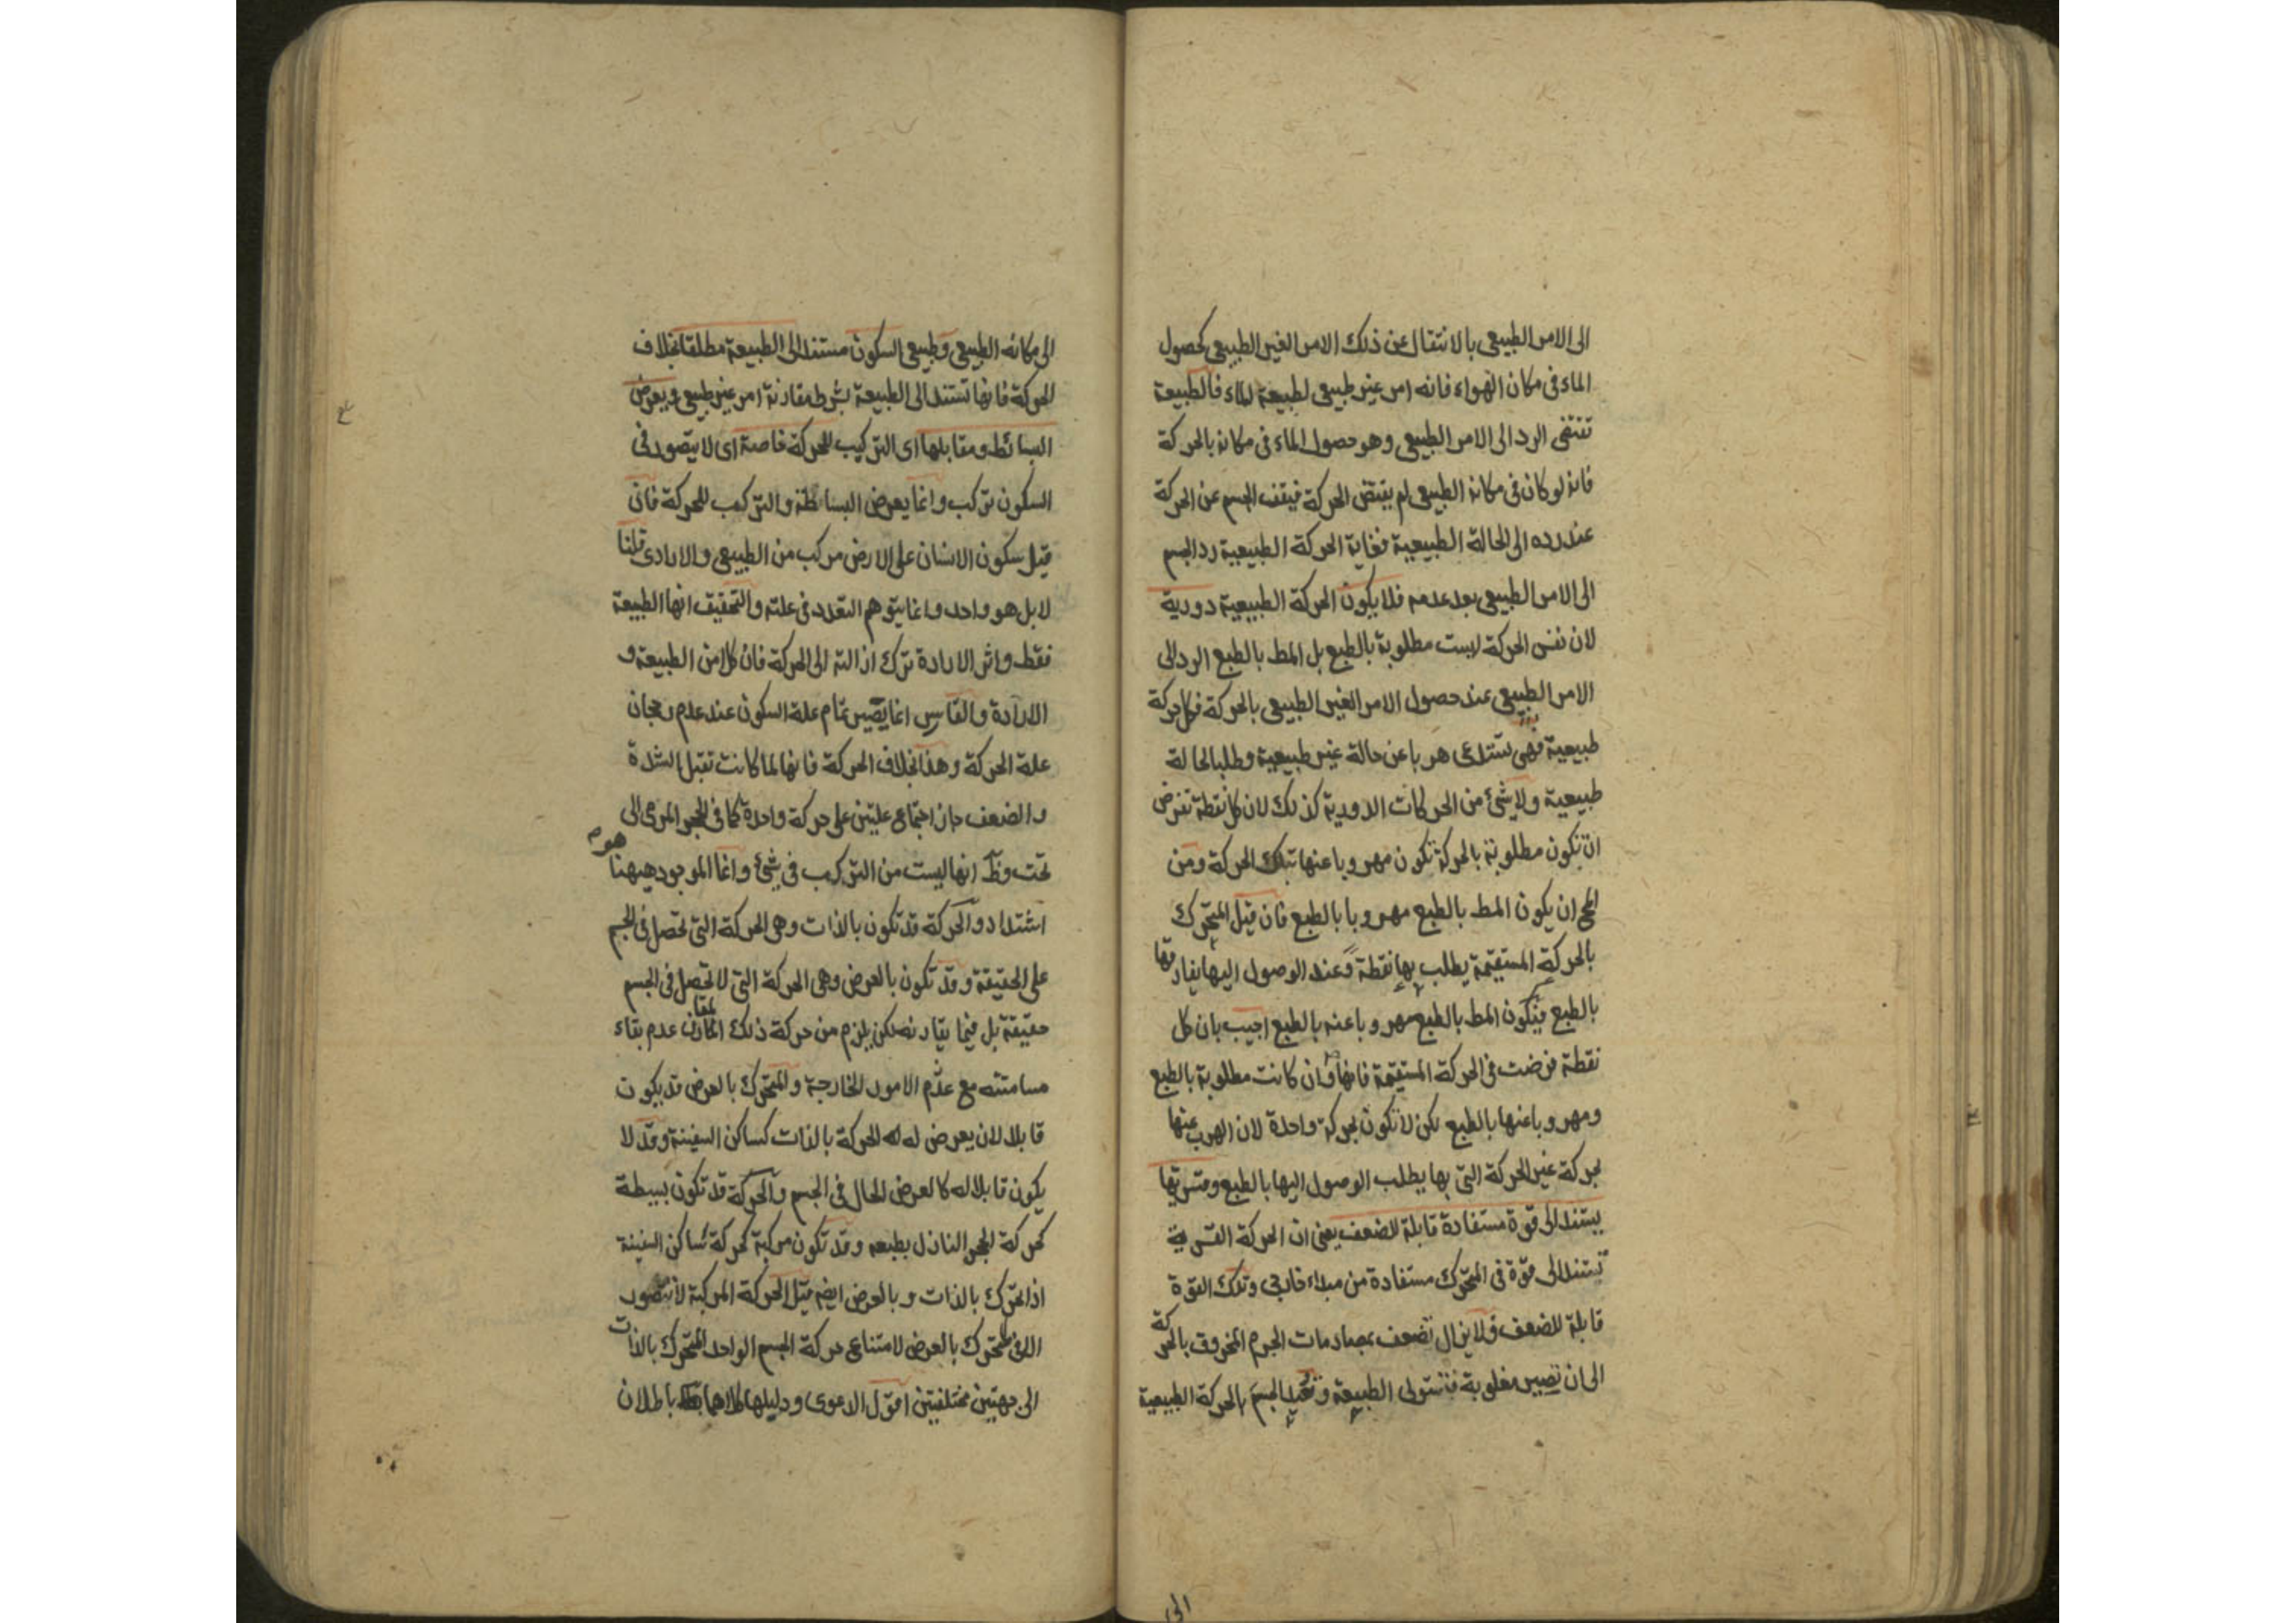 الى الامر الطبيعى بالانتقال عن ذلك الامر الغير الطبيعى كحصول
الماء فى مكان الهواء فانه امر غير طبيعى لطبيعة الماء فالطبيعة
تقتضى الرد الى الامر الطبيعى وهو حصول الماء فى مكانه بالحركة
فانه لو كان فى مكانه الطبيعى لم يقتض الحركة فيقف الجسم عن الحركة
عند رده الى الحالة الطبيعية فغاية الحركة الطبيعية رد الجسم
الى الامر الطبيعى بعد عدمه فلا يكون الحركة الطبيعية دورية
لان نفس الحركة ليست مطلوبة بالطبع بل المط بالطبع الرد الى
الامر الطبيعى عند حصول الامر الغير الطبيعى بالحركة فكل حركة
طبيعية فهى تستدعى هربا عن حالة غير طبيعية وطلبا لحالة
طبيعية ولا شئ من الحركات الدورية كذلك لان كل نقطة تفرض
ان تكون مطلوبة بالحركة تكون مهروبا عنها بتلك الحركة ومن
المح ان يكون المط بالطبع مهروبا بالطبع فان قيل المتحرك
بالحركة المستقيمة يطلب بها نقطة وعند الوصول اليها يفارقها
بالطبع فيكون المط بالطبع مهروبا عنه بالطبع اجيب بان كل
نقطة فرضت فى الحركة المستقيمة فانها وان كانت مطلوبة بالطبع
ومهروبا عنها بالطبع لكن لا تكون بحركة واحدة لان الهرب عنها
بحركة غير الحركة التى بها يطلب الوصول اليها بالطبع وقسريتها
يستند الى قوة مستفادة قابلة للضعف يعنى ان الحركة القسرية
تستند الى قوة فى المتحرك مستفادة من مبداء خارجى وتلك القوة
قابلة للضعف فلا يزال تضعف بمصادمات الجرم المخروق بالحركة
الى ان تصير مغلوبة فتستولى الطبيعة و الجسم بالحركة الطبيعية
الى
الى مكانه الطبيعى وطبيعى السكون مستند الى الطبيعة مطلقا بخلاف
الحركة فانها تستند الى الطبيعة بشرط مقارنة امر غير طبيعى ويعرض
البسائط ومقابلها اى التركيب للحركة خاصة اى لا يتصور فى
السكون تركب وانما يعرض البساطة والتركب للحركة فان
قيل سكون الانسان على الارض مركب من الطبيعى والارادى قلنا
لا بل هو واحد وانما يتوهم التعدد فى علته والتحقيق انها الطبيعة
فقط واثر الارادة ترك ازالته الى الحركة فان كلا من الطبيعة و
الارادة والقاسر انما يصير تمام علة السكون عند عدم رجحان
علة الحركة وهذا بخلاف الحركة فانها لما كانت تقبل الشدة
والضعف جاز اجتماع علتين على حركة واحدة كما فى الحجر المرمى الى
تحت وظ انها ليست من التركب فى شئ وانما الموجود هيهنا هو
اشتداد والحركة قد تكون بالذات وهى الحركة التى تحصل فى الجسم
على الحقيقة وقد تكون بالعرض وهى الحركة التى لا تحصل فى الجسم
حقيقة بل فيما يقارنه لكن يلزم من حركة ذلك المقارن عدم بقاء
مسامتته مع عدم الامور الخارجة والمتحرك بالعرض قد يكون
قابلا لان يعرض له له الحركة بالذات كساكن السفينة وقد لا
يكون قابلا له كالعرض الحال فى الجسم والحركة قد تكون بسيطة
كحركة الحجر النازل بطبعه وقد تكون مركبة كحركة ساكن السفينة
اذا تحرك بالذات وبالعرض ايضم قيل الحركة المركبة لا تتصور
الا فى المتحرك بالعرض لامتناع حركة الجسم الواحد المتحرك بالذات
الى جهتين مختلفتين اقول الدعوى ودليلها كلاهما باطلان